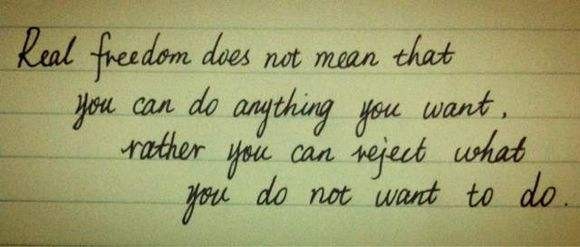 Real freedom does not mean that
you can do anything you want,
rather you can reject what
you do not want to do.